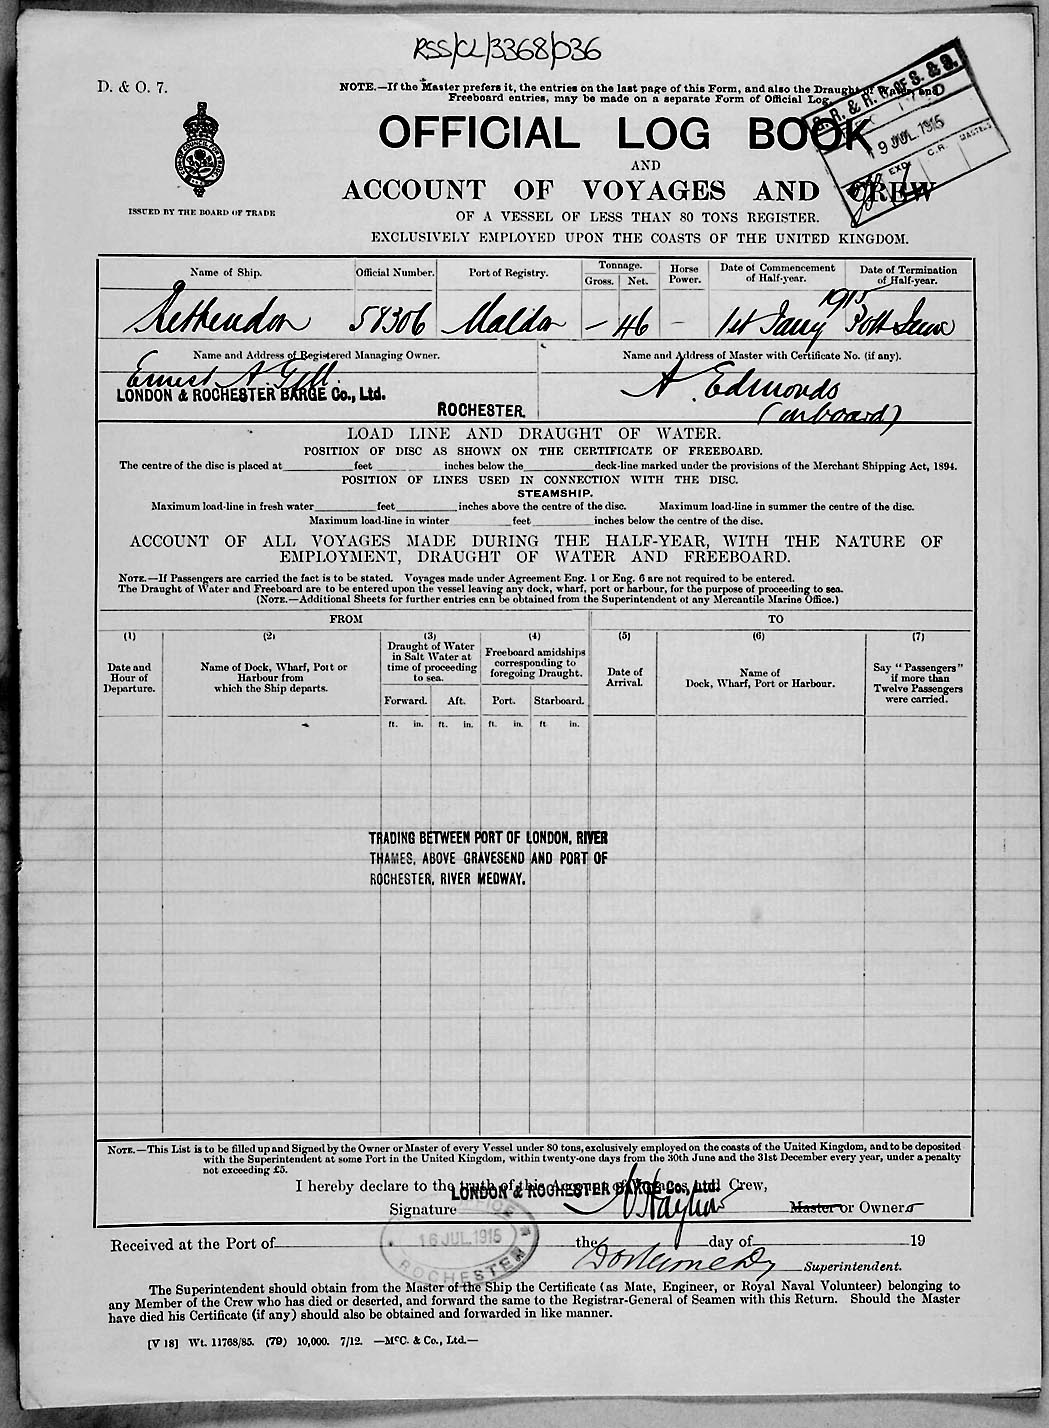 RSS/CL/3368/036
D. & O. 7.
NOTE.—If the Master prefers it, the entries on the last page of this Form, and also the Draught of Water and
Freeboard entries, may be made on a separate Form of Official Log.
OFFICIAL LOG BOOK
AND
ACCOUNT OF VOYAGES AND CREW
OF A VESSEL OF LESS THAN 80 TONS REGISTER.
EXCLUSIVELY EMPLOYED UPON THE COASTS OF THE UNITED KINGDOM.
ISSUED BY THE BOARD OF TRADE
19 JUL. 1915
EXD.
C.R.
MASTERS
Name of Ship.
Official Number.
Port of Registry.
Tonnage.
Gross. Net.
Horse
Power.
Date of Commencement
of Half-year.
Date of Termination
of Half-year.
1915
Rettendon 58306 Maldon — 46 — 1st Jany 30th June
Name and Address of Registered Managing Owner.
Name and Address of Master with Certificate No. (if any).
Ernest A. Gill.
LONDON & ROCHESTER BARGE Co., Ltd.
ROCHESTER.
A. Edmonds
(onboard)
LOAD LINE AND DRAUGHT OF WATER.
POSITION OF DISC AS SHOWN ON THE CERTIFICATE OF FREEBOARD.
The centre of the disc is placed at feet inches below the deck-line marked under the provisions of the Merchant Shipping Act, 1894.
POSITION OF LINES USED IN CONNECTION WITH THE DISC.
STEAMSHIP.
Maximum load-line in fresh water feet inches above the centre of the disc. Maximum load-line in summer the centre of the disc.
Maximum load-line in winter feet inches below the centre of the disc.
ACCOUNT OF ALL VOYAGES MADE DURING THE HALF-YEAR, WITH THE NATURE OF
EMPLOYMENT, DRAUGHT OF WATER AND FREEBOARD.
NOTE.—If Passengers are carried the fact is to be stated. Voyages made under Agreement Eng. 1 or Eng. 6 are not required to be entered.
The Draught of Water and Freeboard are to be entered upon the vessel leaving any dock, wharf, port or harbour, for the purpose of proceeding to sea.
(NOTE.—Additional Sheets for further entries can be obtained from the Superintendent of any Mercantile Marine Office.)
FROM
TO
(1)
Date and
Hour of
Departure.
(2)
Name of Dock, Wharf, Port or
Harbour from
which the Ship departs.
(3)
Draught of Water
in Salt Water at
time of proceeding
to sea.
Forward. Aft.
(4)
Freeboard amidships
corresponding to
foregoing Draught.
Port. Starboard.
(5)
Date of
Arrival.
(6)
Name of
Dock, Wharf, Port or Harbour.
(7)
Say "Passengers"
if more than
Twelve Passengers
were carried.
ft. in. ft. in. ft. in. ft. in.
TRADING BETWEEN PORT OF LONDON, RIVER
THAMES, ABOVE GRAVESEND AND PORT OF
ROCHESTER, RIVER MEDWAY.
NOTE.—This List is to be filled up and Signed by the Owner or Master of every Vessel under 80 tons, exclusively employed on the coasts of the United Kingdom, and to be deposited
with the Superintendent at some Port in the United Kingdom, within twenty-one days from the 30th June and the 31st December every year, under a penalty
not exceeding £5.
I hereby declare to the truth of this Account of Voyages and Crew,
LONDON & ROCHESTER BARGE Co., Ltd.
Signature Master or Owner.
16 JUL 1915
ROCHESTER
Received at the Port of the day of 19
Superintendent.
The Superintendent should obtain from the Master of the Ship the Certificate (as Mate, Engineer, or Royal Naval Volunteer) belonging to
any Member of the Crew who has died or deserted, and forward the same to the Registrar-General of Seamen with this Return. Should the Master
have died his Certificate (if any) should also be obtained and forwarded in like manner.
[V 18] Wt. 11768/85. (79) 10,000. 7/12. —McC. & Co., Ltd.—